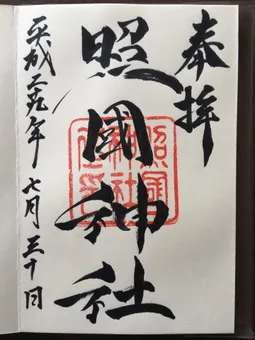 奉拝
照國神社
平成二九年 七月三十日
照國
神社